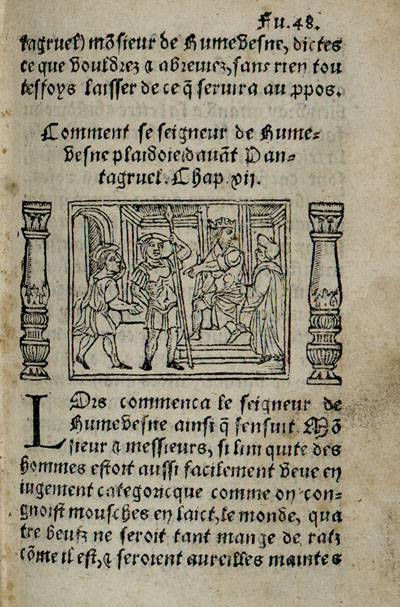 Fu.48.
tagruel) mõsieur de Humevesne, dictes
ce que vouldrez & abreviez, sans rien tou
tesfoys laisser de ce q̃ servira au ꝓpos.
Comment se seigneur de Hume-
vesne plaidoie davãt Pan-
tagruel. Chap. xii.
LOrs commenca le seigneur de
Humevesne ainsi q̃ sensuit. Mõ
sieur & messieurs, si liniquite des
hommes estoit aussi facilement veue en
iugement categoricque comme on con-
gnoist mousches en laict, le monde, qua
tre beufz ne seroit tant mange de ratz
cõme il est, & seroient aureilles maintes